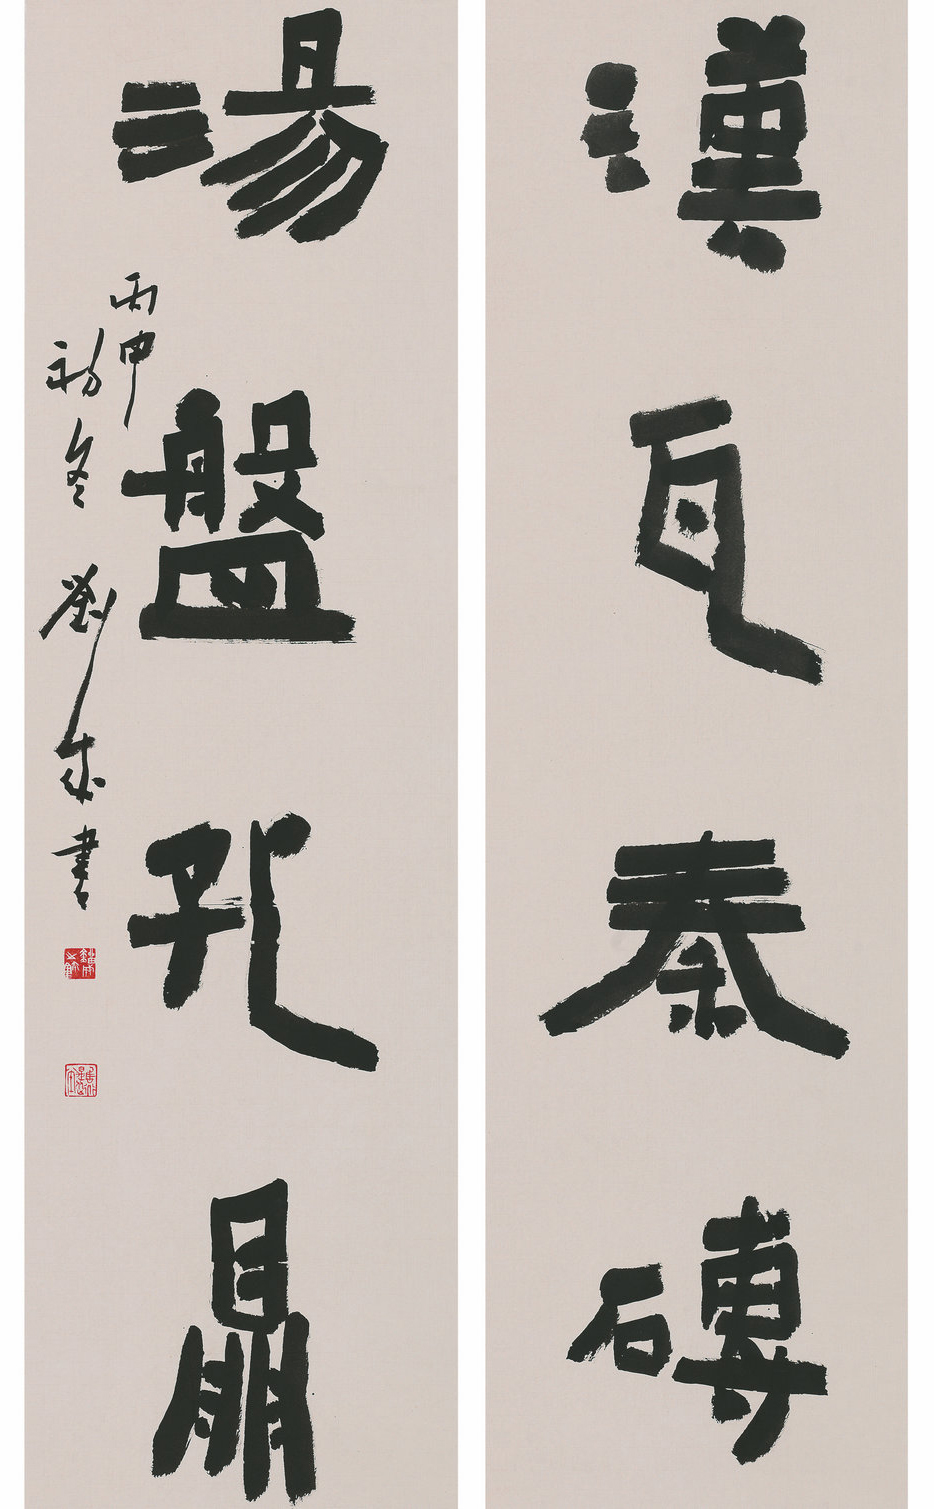 漢瓦秦磚
湯盤孔鼎
丙申
初冬劉成書